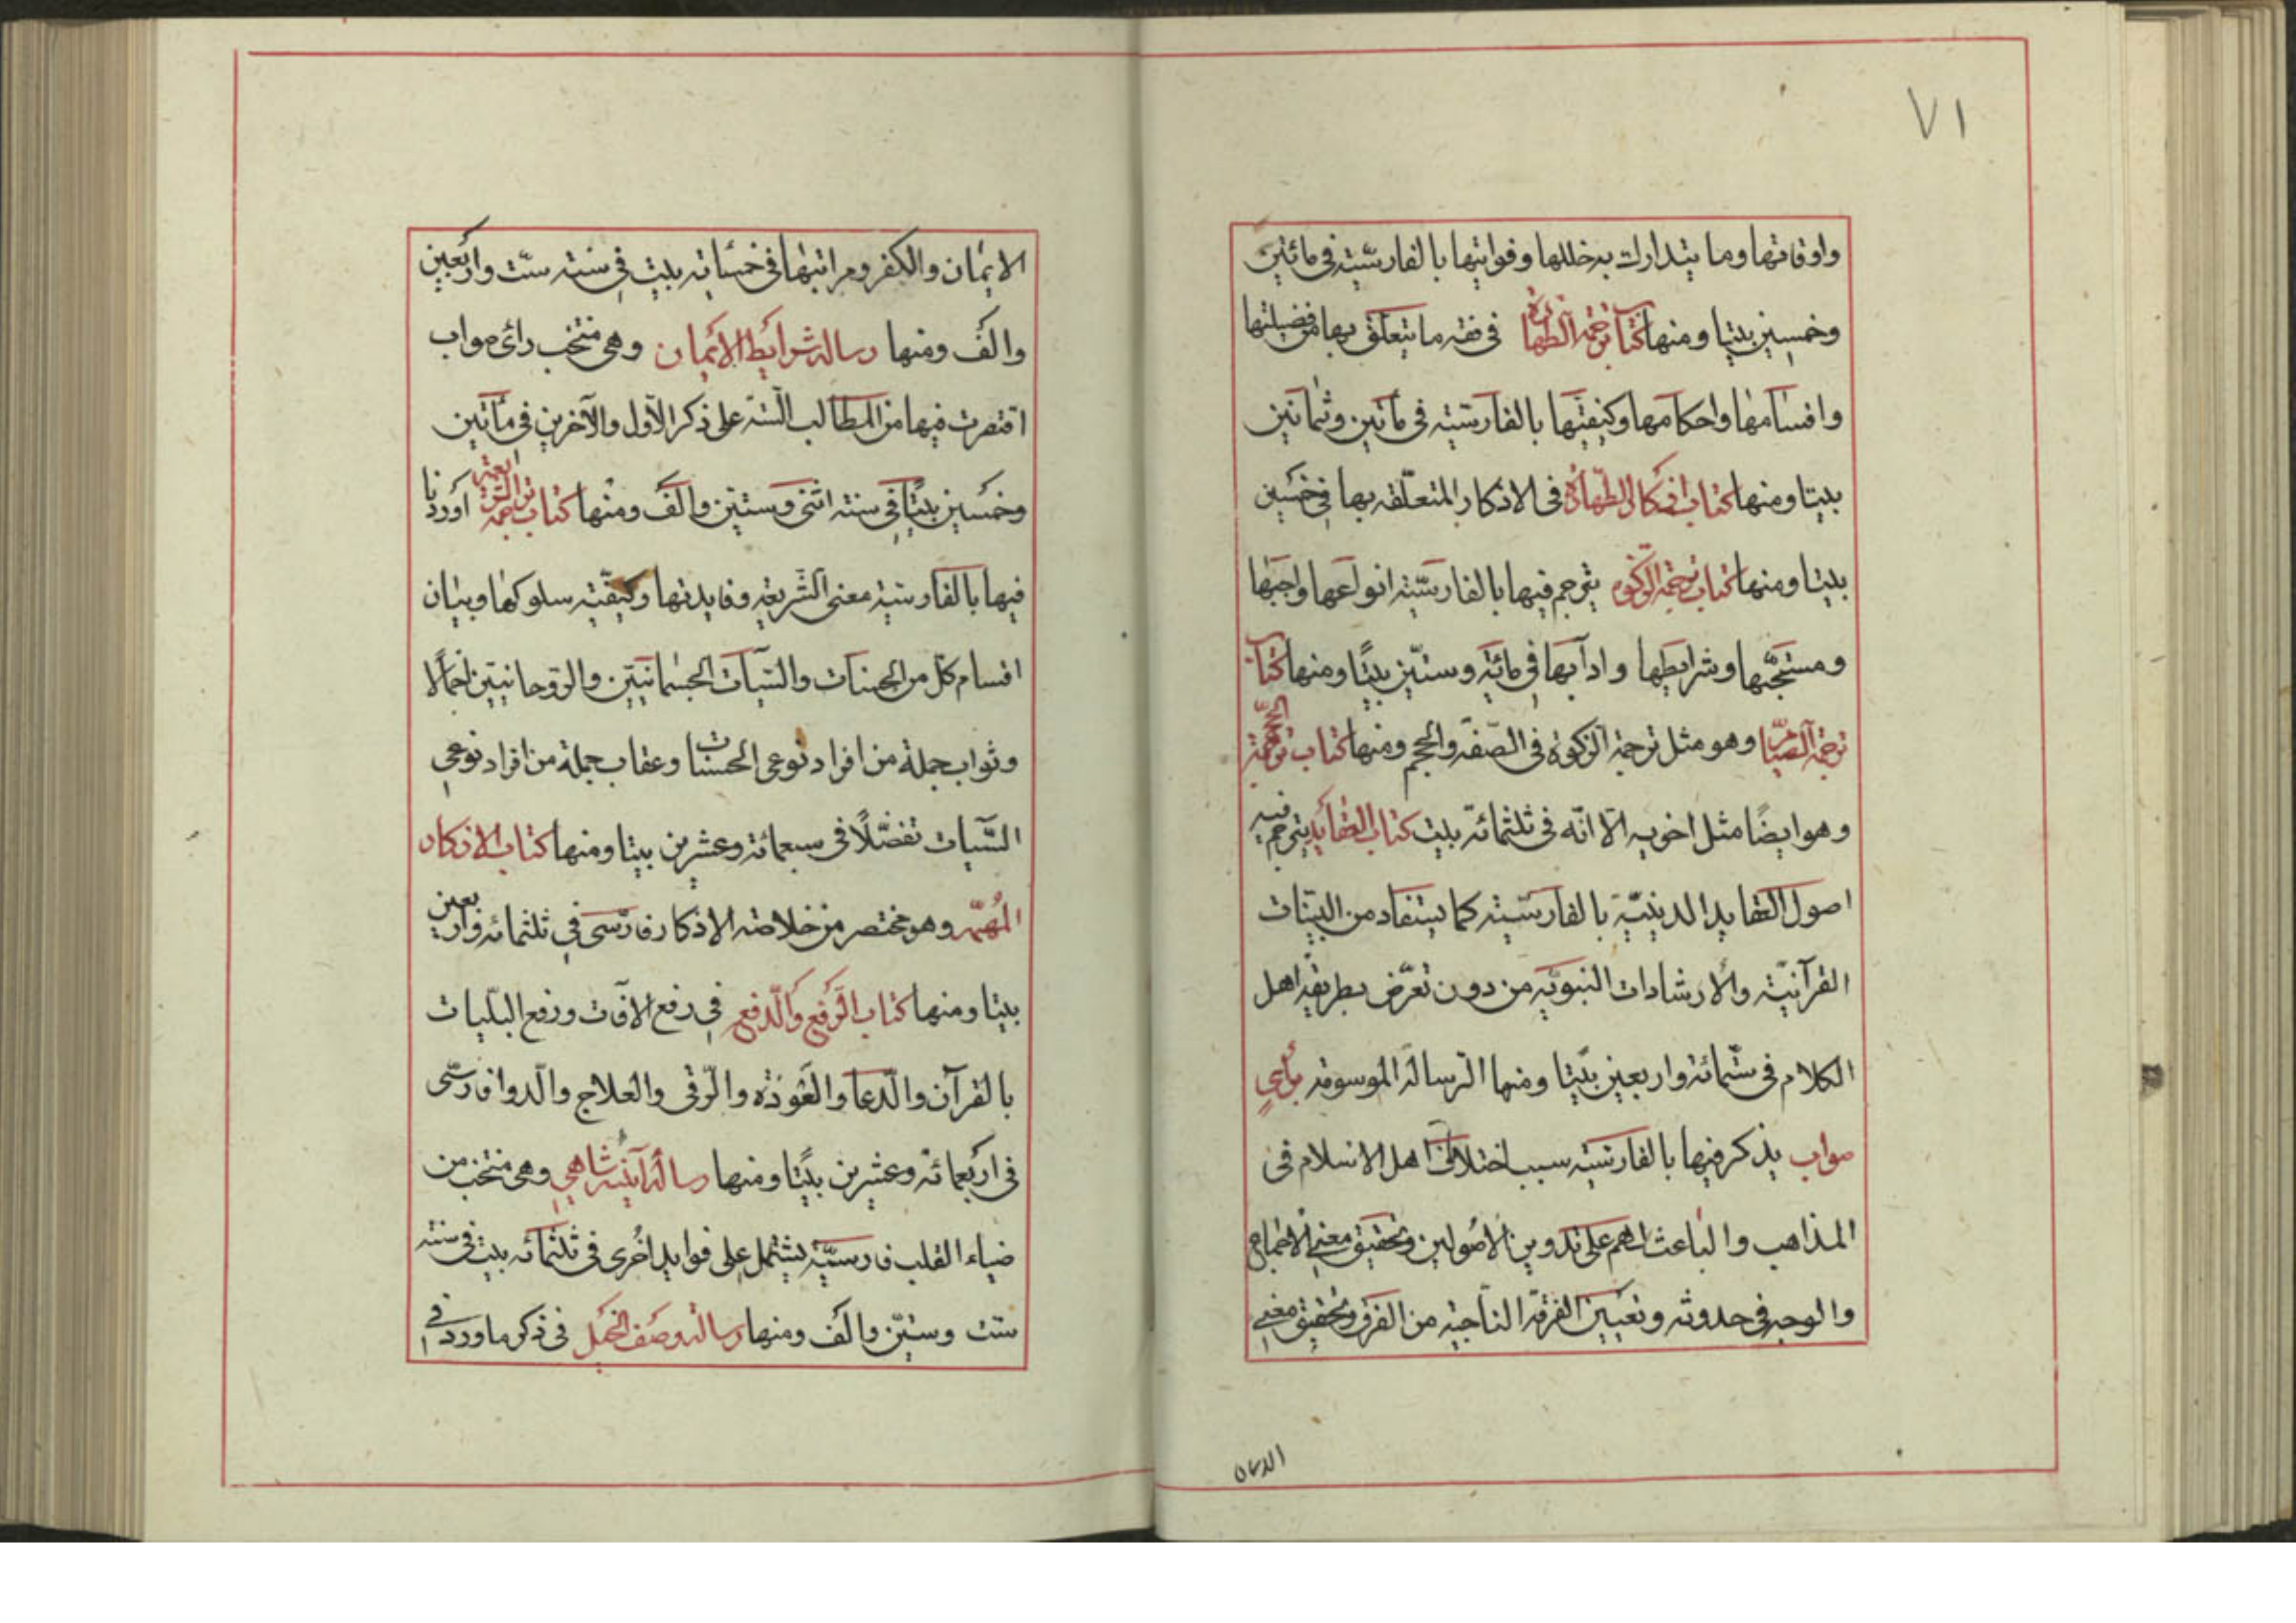 ٧١
واوقاتها وما يتدارك به خللها وفوايتها بالفارسيّة في مائتين
وخمسين بيتا ومنها كتاب ترجمة الطهارة في فقه ما يتعلّق بها من فضيلتها
واقسامها واحكامها وكيفيّتها بالفارسيّة في مأتين وثمانين
بيتا ومنها كتاب اذكار الطّهارة في الاذكار المتعلّقه بها في خمسين
بيتا ومنها كتاب ترجمة الزكوة يترجم فيها بالفارسيّة انواعها واجبها
ومستحبّها وشرايطها وادآبها في مائة وستّين بيتًا ومنها كتاب
ترجمة الصيام وهو مثل ترجمة الزكوة في الصّفة والحجم ومنها كتاب ترجمة
وهو ايضًا مثل اخويه الّا انّه في ثلثمائة بيت كتاب العقايد يترجم فيه
اصول العقايد الدينيّة بالفارسيّة كما يستفاد من البيّنات
القرآنيّة والارشادات النبويّه من دون تعرّض بطريقة اهل
الكلام في ستّمائة واربعين بيتا ومنها الرّسالة الموسومه برأي
صواب يذكر فيها بالفارسيّة سبب اختلاف اهل الاسلام في
المذاهب والباعث لهم على تدوين الاصولين وتحقيق معنى الاجماع
والوجه في حدوثه وتعيين الفرقة النّاجية من الفرق وتحقيق معنى
الايمان
الايمان والكفر ومراتبها في خمسمائه بيت في سنة ستّ واربعين
والف ومنها رسالة شرايط الايمان وهي منتخب رأي صواب
اقتصرت فيها من المطالب السّتة على ذكر الاول والآخرين في مأتين
وخمسين بيتًا في سنة اثنى وستّين والف ومنها كتاب ترجمة الشريعة اوردنا
فيها بالفارسيّة معنى الشّريعة وفايدتها وكيفيّته سلوكها وبيان
اقسام كلّ من الحسنات والسّيّآت الجسمانيّتين والرّوحانيّتين اجمالًا
وثواب جملة من افراد نوعي الحسنات وعقاب جملة من افراد نوعي
السّيّآت تفضّلًا في سبعمائة وعشرين بيتا ومنها كتاب الاذكار
المهمّه وهو مختصر من خلاصة الاذكار فارسّي في ثلثمائه واربعين
بيتا ومنها كتاب الرّفع والدّفع في رفع الآفات ودفع البليّات
بالقرآن والدّعا والعوذة والرّقى والعلاج والدّوا فارسّى
في اربعمائة وعشرين بيتًا ومنها رسالة آينه شاهي وهي منتخب من
ضياء القلب فارسيّة يشتمل على فوايد اخرى في ثلثمائه بيت في سنته
ستّ وستّين والف ومنها رسالة وصف الخيل في ذكر ما ورد في ا